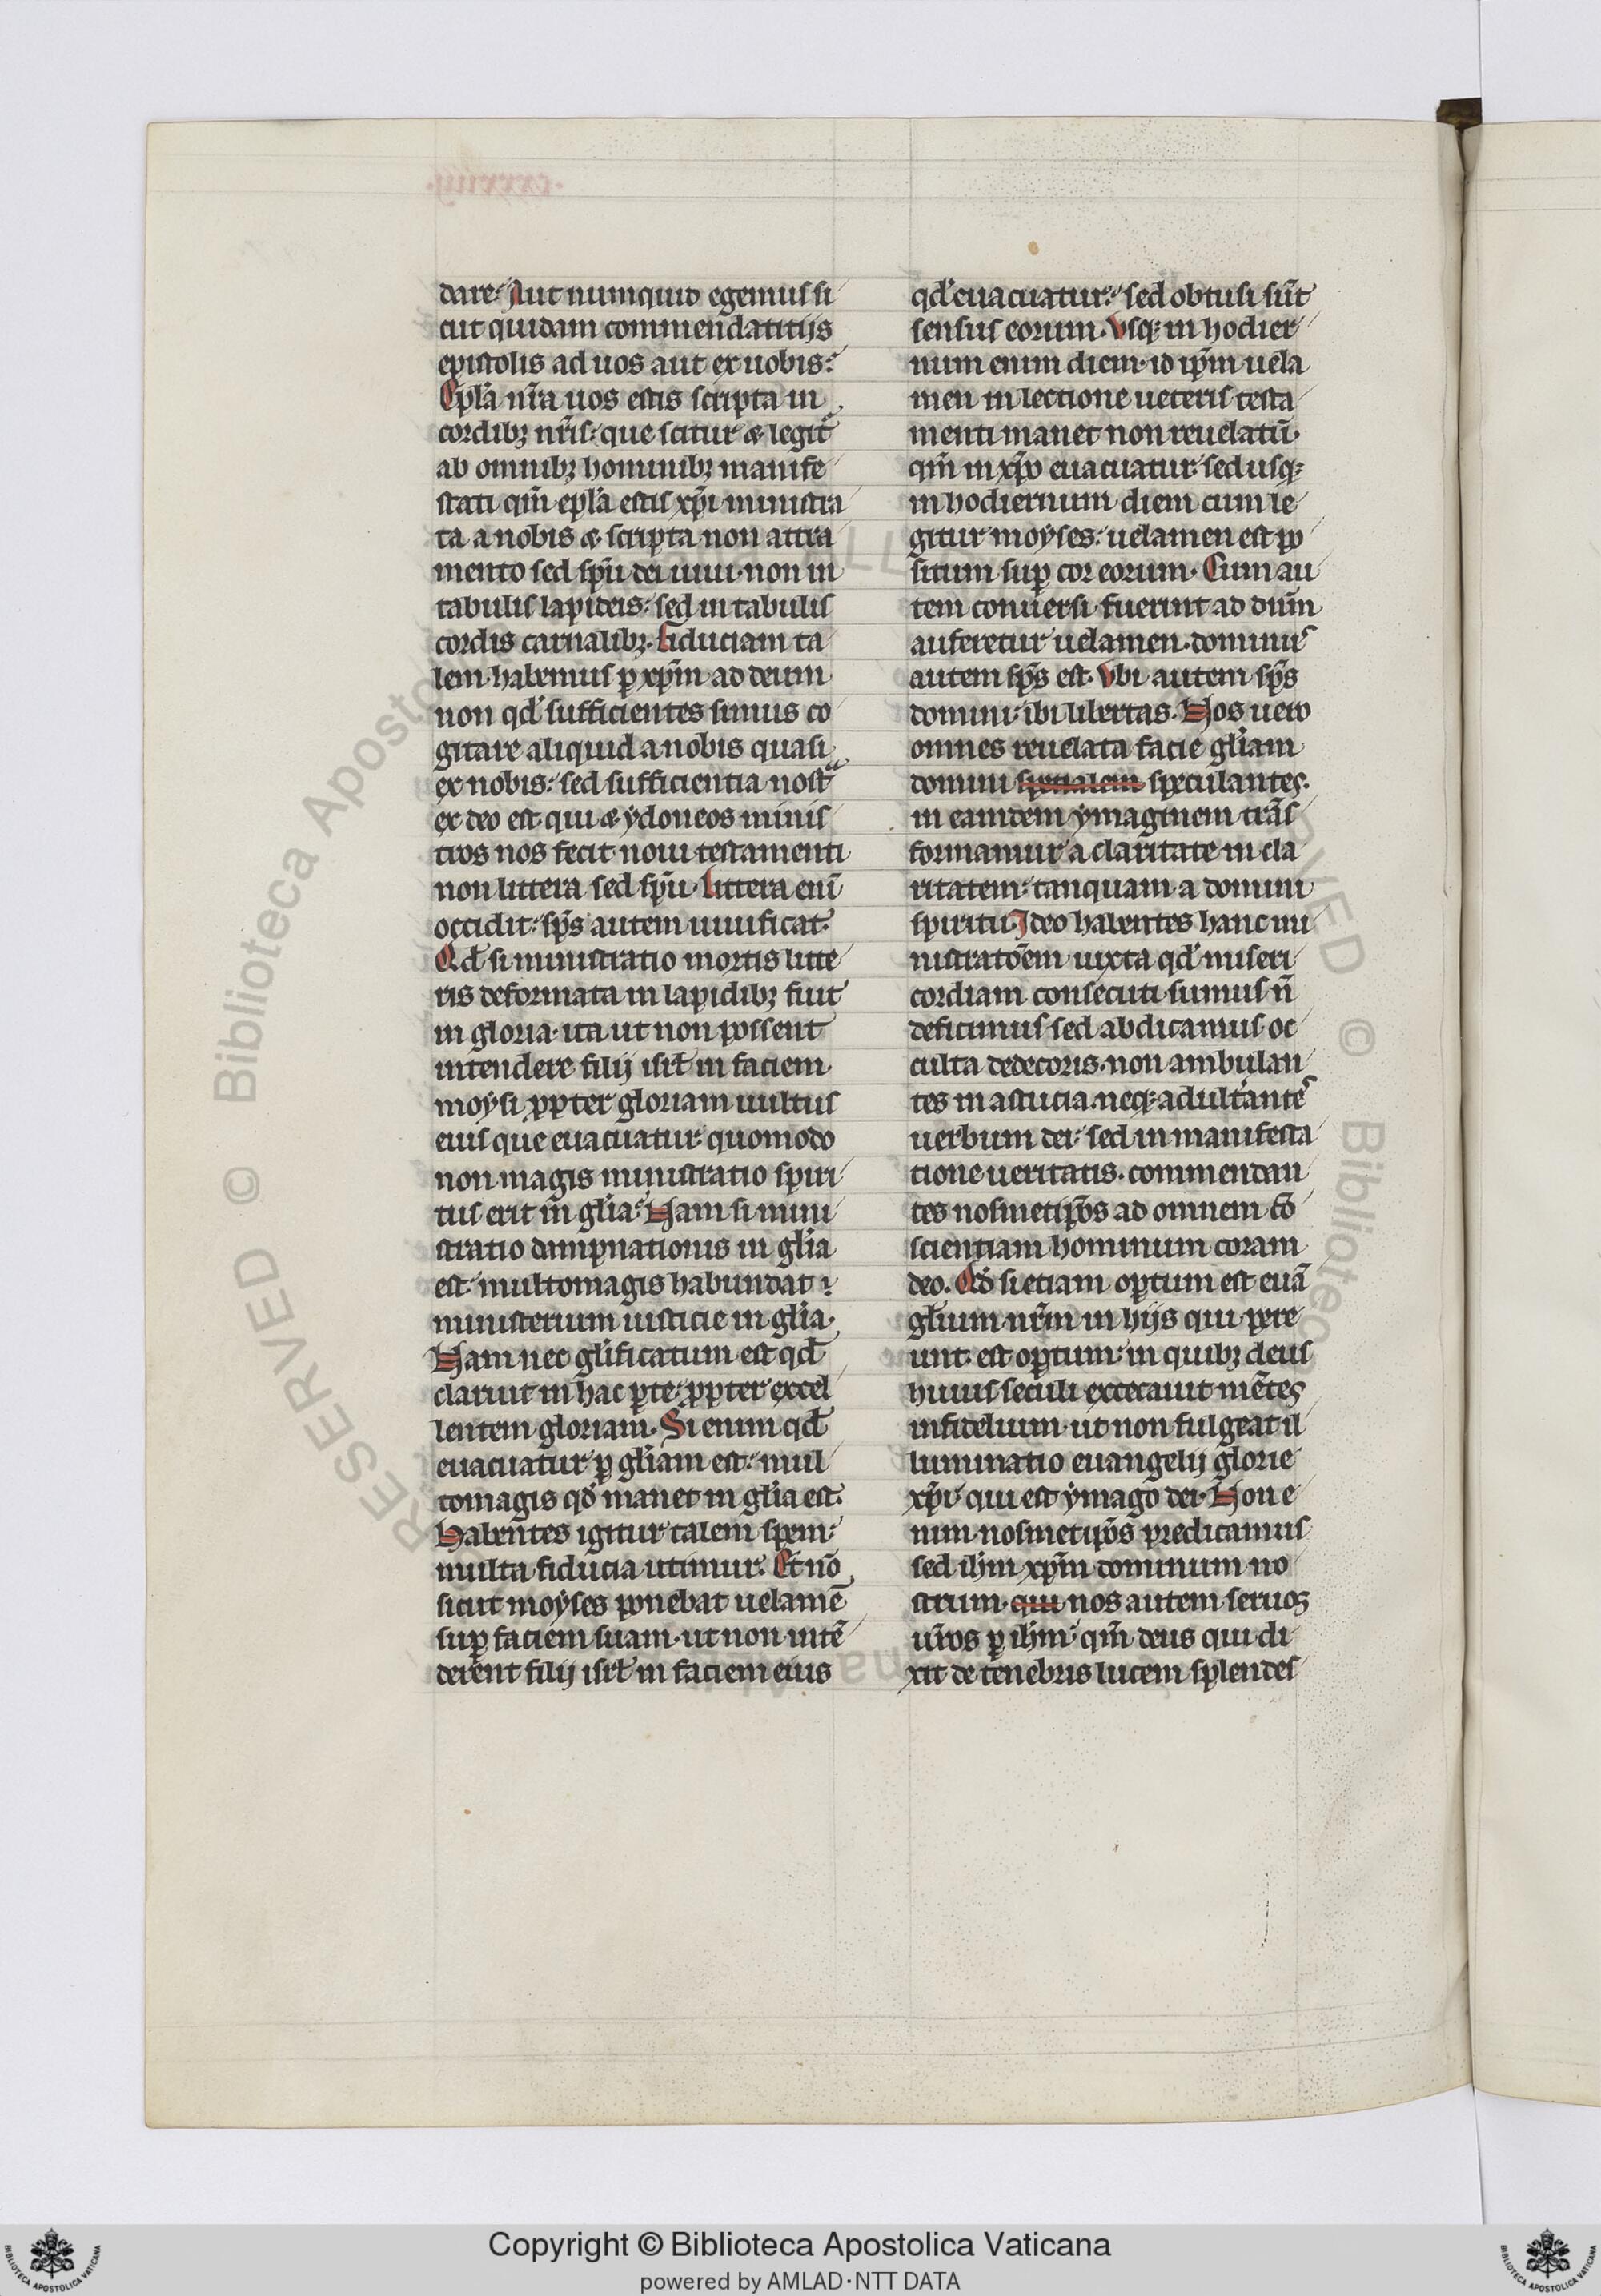 dare. Aut numquid egemus si
cut quidam commendatitijs
epistolis ad uos aut ex uobis.
Ep̅la nr̅a uos estis scripta in
cordibꝫ nr̅is. que scitur ⁊ legit̅
ab omnibꝫ hominibꝫ manife
stati qm̅ ep̅la estis xp̅i ministra
ta a nobis ⁊ scripta non attra
mento sed sp̅u dei uiui. non in
tabulis lapideis. sed in tabulis
cordis carnalibꝫ. Fiduciam ta
lem habemus ꝑ xp̅m ad deum
non qd̅ sufficientes simus co
gitare aliquid a nobis quasi
ex nobis. sed sufficientia nostᵃ
ex deo est. qui ⁊ ydoneos minis
tros nos fecit noui testamenti
non littera sed sp̅u. Littera eni̅
occidit. sp̅s autem uiuificat.
Qd̅ si ministratio mortis litte
ris deformata in lapidibꝫ fuit
in gloria. ita ut non possent
intendere filij isrl̅ in faciem
moysi ꝓpter gloriam uultus
eius que euacuatur. quomodo
non magis ministratio spiri
tus erit in gl̅ia. Nam si mini
stratio dampnationis in gl̅ia
est. multomagis habundat
ministerium iusticie in gl̅ia.
Nam nec gl̅ificatum est qd̅
claruit in hac ꝑte. ꝓpter excel
lentem gloriam. Si enim qd̅
euacuatur ꝑ gl̅iam est. mul
tomagis qd̅ manet in gl̅ia est.
Habentes igitur talem spem.
multa fiducia utimur. Et no̅
sicut moyses ponebat uelame̅
suꝑ faciem suam. ut non inte̅
derent filij isrl̅ in faciem eius
qd̅ euacuatur. sed obtusi su̅t
sensus eorum. Vsqꝫ in hodier
num enim diem. id ip̅m uela
men in lectione ueteris testa
menti manet non reuelatu̅.
qm̅ in xp̅o euacuatur. sed usqꝫ
in hodiernum diem cum le
gitur moyses. uelamen est po
situm suꝑ cor eorum. Cum au
tem conuersi fuerint ad dn̅m
auferetur uelamen. dominus
autem sp̅s est. Vbi autem sp̅s
domini. ibi libertas. Nos uero
omnes reuelata facie gl̅iam
domini speculantes.
in eamdem ymaginem tra̅s
formamur a claritate in cla
ritatem. tanquam a domini
spiritu. Ideo habentes hanc mi
nistrato̅em iuxta qd̅ miseri
cordiam consecuti sumus n̅
deficimus. sed abdicamus oc
culta dedecoris. non ambulan
tes in astucia. neqꝫ adult̅antes
uerbum dei. sed in manifesta
tione ueritatis. commendan
tes nosmetip̅os ad omnem co̅
scientiam hominum coram
deo. Qd̅ si etiam oꝑtum est eua̅
gl̅ium nr̅m in hijs qui pere
unt. est oꝑtum. in quibꝫ deus
huius seculi excecauit me̅tes
infidelium. ut non fulgeat il
luminatio euangelij glorie
xp̅i. qui est ymago dei. Non e
nim nosmetip̅os predicamus
sed ih̅m xp̅m dominum no
strum. qui nos autem seruos
ur̅os ꝑ ih̅m. qm̅ deus qui di
xit de tenebris lucem splendes
Copyright © Biblioteca Apostolica Vaticana
powered by AMLAD·NTT DATA